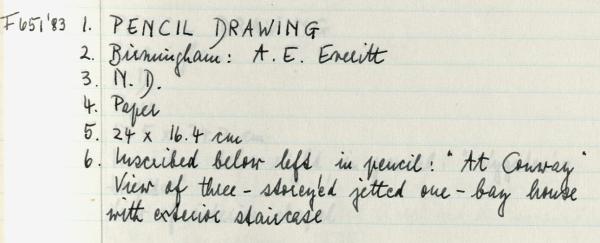 F651'83 1. PENCIL DRAWING
2. Birmingham: A. E. Everitt
3. N. D.
4. Paper
5. 24 x 16.4 cm
6. Inscribed below left in pencil: "At Conway"
View of three-storeyed jetted one-bay house
with exterior staircase